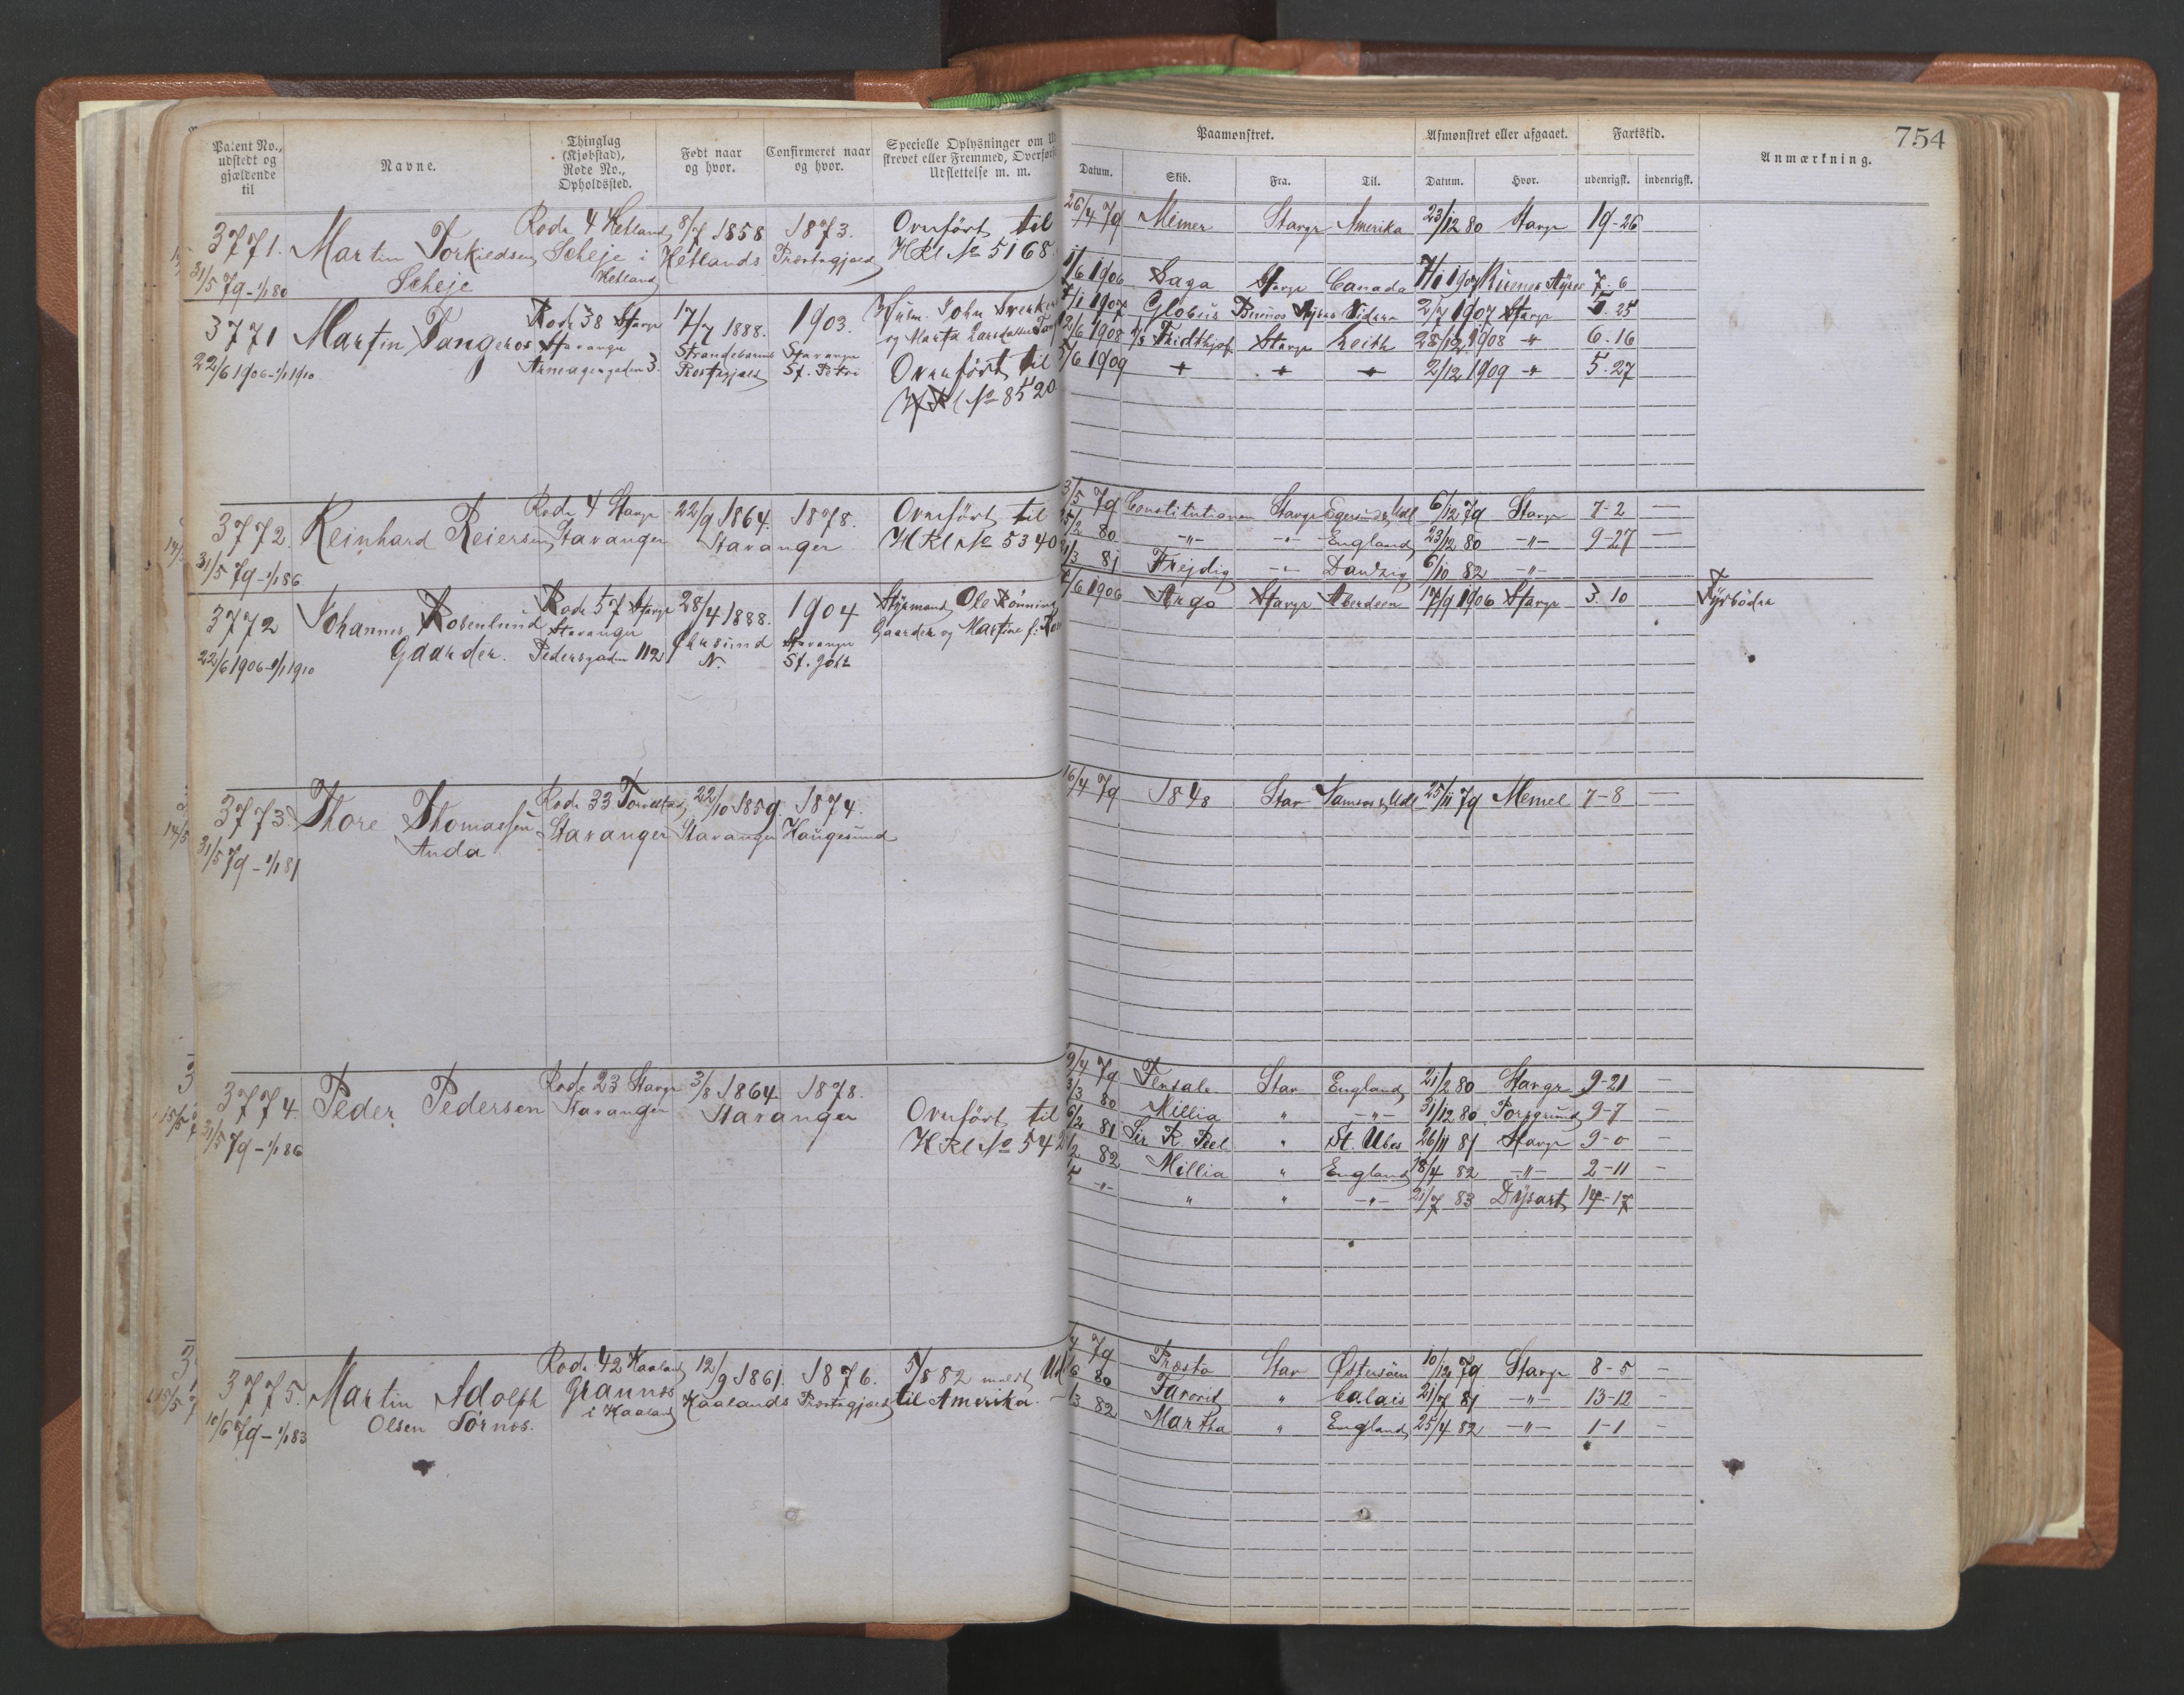 754
Patent No., udstedt og gjældende til
Navne.
Thinglag (Kjøbstad), Rode No., Opholdssted.
Født naar og hvor.
Confirmeret naar og hvor.
Specielle Oplysninger om
strevet eller Fremmed, Overført
Udslettelse m. m.
Paamønstret.
Afmønstret eller afgaaet.
Fartstid.
Anmærkning.
Datum. Skib. Fra. Til. Datum. Hvor. udenrigsk. indenrigsk.
3771. Martin Torkiedsen Scheje
31/5 79 - 1/1 80
Rode 4 Hetland Scheje i Hetland
8/7 1858 Hetlands
1873. Præstegjæld
Overført til HRl No 5168
26/4 79 Mimer Stavgr Amerika 23/12 80 Stavgr 19-26
3771 Martin Vangenes
22/6 1906 - 1/1 1910
Rode 38 Stavgr Stavanger
17/7 1888. Strandebarms Præstegjæld
1903. Stavanger St. Petri
Overført til
HRl No 8520
1/6 1906 Saga Stavgr Canada 7/1 1907 Buenos Ayres 7. 6
7/1 1907 Globus Buenos Ayres 2/7 1907 Stavgr 5. 25
12/6 1908 Fridthjof Stavgr Leith 28/12 1908 -"- 6. 16
5/6 1909 -"- -"- -"- 2/12 1909 -"- 5. 27
3772. Reinhard Reiersen
31/5 79 - 1/1 86
Rode 4 Stavgr Stavanger
22/9 1864. Stavanger
1878.
Overført til HRl No 5340
3/5 79 Constitutionen Stavgr Egersund & Udl 6/12 79 Stavgr 7-2 —
25/2 80 -"- -"- England 23/12 80 -"- 9-27 —
21/3 81 Frejdig -"- Danzig 6/10 82 -"-
3772 Johannes Rosenlund Gaarder.
22/6 1906 - 1/1 1910
Rode 57 Stavgr Stavanger Pedersgaden 112
28/4 1888. Chrsund N.
1904 Stavanger St. Joh
Styrmand Ole Rønning
Gaarder og Martine f.
6 1906 Argo Stavgr Aberdeen 17/9 1906 Stavgr 3. 10 Fyrbøder
3773. Thore Thomassen Anda
31/5 79 - 1/1 81
Rode 33 Torvestad Stavanger
22/10 1859. Stavanger
1874. Haugesund
16/4 79 1848 Stav Namsos & Udl 25/11 79 Memel 7-8 —
3774. Peder Pedersen
31/5 79 - 1/1 86
Rode 23 Stavgr Stavanger
3/8 1864 Stavanger
1878.
Overført til
HRl No 542
9/4 79 Tensale Stav England 21/2 80 Stavgr 9-21 —
3/3 80 Millia " -"- 31/12 80 Porsgrund 9-7 —
6/2 81 Sir R. Peel " St. Ubes 26/11 81 Stavgr 9-0 —
/2 82 Millia " England 18/4 82 -"- 2-11 —
/5 -"- " " -"- 21/7 83 Dysart 14-17
3775. Martin Adolph Olsen Sørnes.
10/6 79 - 1/1 83
Rode 42 Haaland Grannes i Haaland
12/9 1861. Haalands
1876. Præstegjæld
5/8 82 meldt Ud
til Amerika.
/4 79 Præsto Stav Østersøen 10/12 79 Stavgr 8-5 —
/6 80 Favorit " Calais 21/7 81 -"- 13-12 —
/3 82 Martha " England 25/4 82 -"- 1-1 —